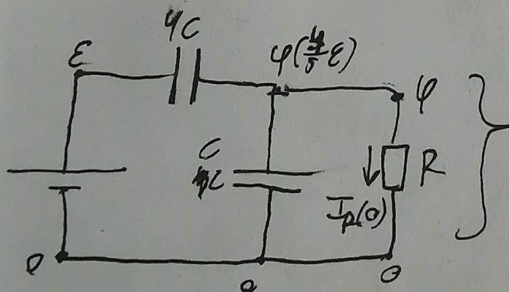 4C
ε
φ(4/5 ε)
φ
C
R
I_R(0)
0
0
0